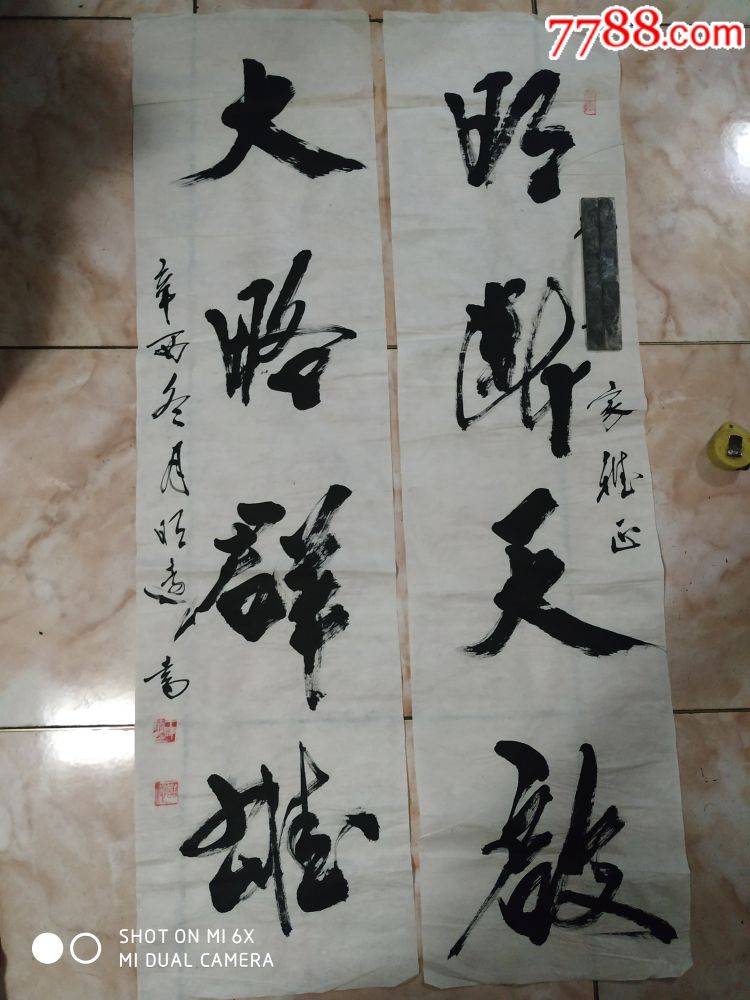 7788.com
明断天啟
家雅正
大略群雄
辛酉冬月明遠書
SHOT ON MI 6X
MI DUAL CAMERA